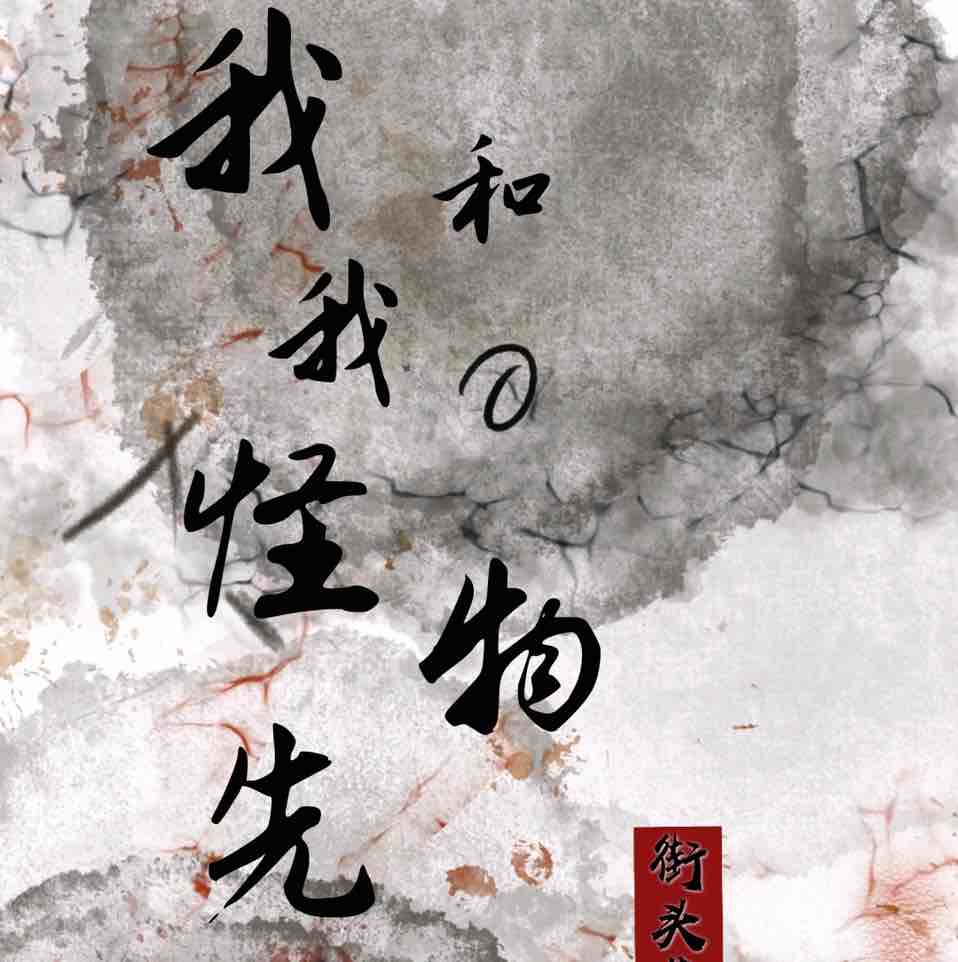 我和我の怪物先
街头